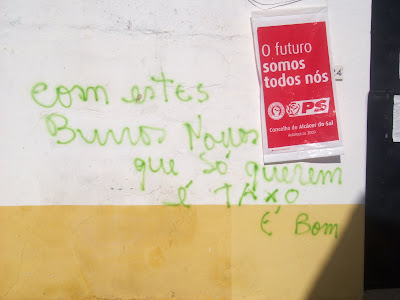 O futuro
somos
todos nós
PS
Concelho de Alcácer do Sal
com estes
Burros Novos
que só querem
é TAXO
É Bom